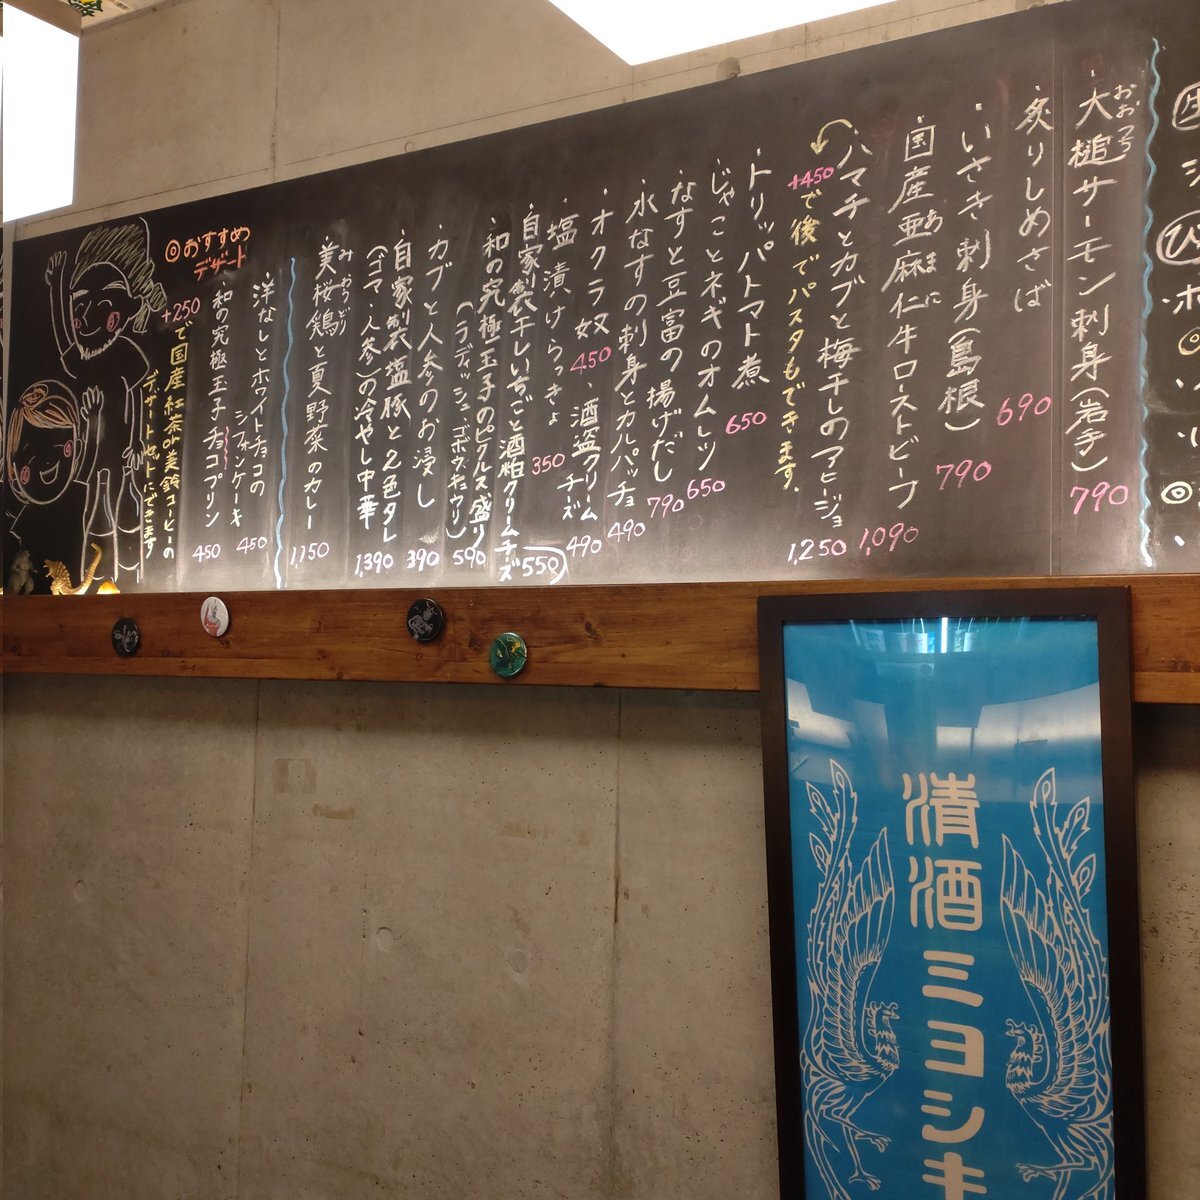 ・大槌サーモン刺身(岩手) 790
おおつち
・炙りしめさば 690
・いさき刺身(島根) 790
国産亜麻仁牛ローストビーフ 1,090
あまに
ハマチとカブと梅干しのアヒージョ 1,250
+450で後でパスタもできます。
・トリッパトマト煮 650
・じゃことネギのオムレツ 650
・なすと豆富の揚げだし 790
・水なすの刺身とカルパッチョ 490
・オクラ奴 450 ・酒盗クリームチーズ 490
・塩漬けらっきょ 350
・自家製干しいちごと酒粕クリームチーズ 550
・和の究極玉子のピクルス盛り 590
(ラディッシュ、ゴボウ、きゅうり)
・カブと人参のお浸し 390
・自家製塩豚と2色タレ
(ゴマ・人参)の冷やし中華 1,390
みおうどり
・美桜鶏と夏野菜のカレー 1,150
◎おすすめ
デザート
・洋なしとホワイトチョコの
シフォンケーキ 450
・和の究極玉子チョコプリン 450
+250で国産紅茶or美鈴コーヒーの
デザートセットにできます
清酒ミヨシキ